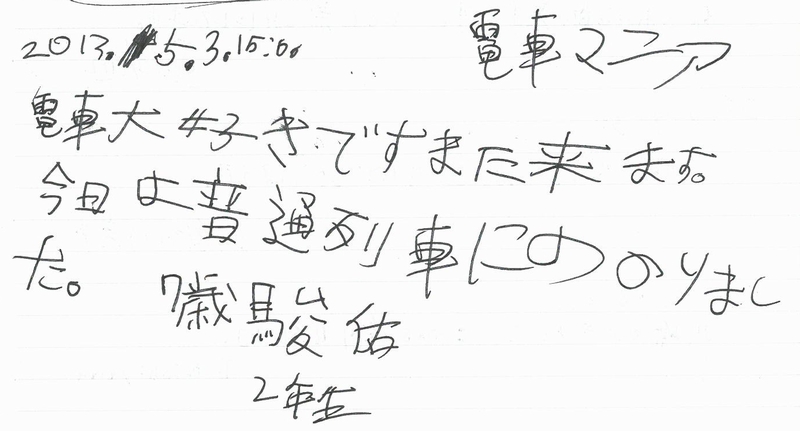 2013. 5.3.15:00
電車マニア
電車大好きですまた来ます。
今日は普通列車にののりまし
た。
7歳駿佑
2年生